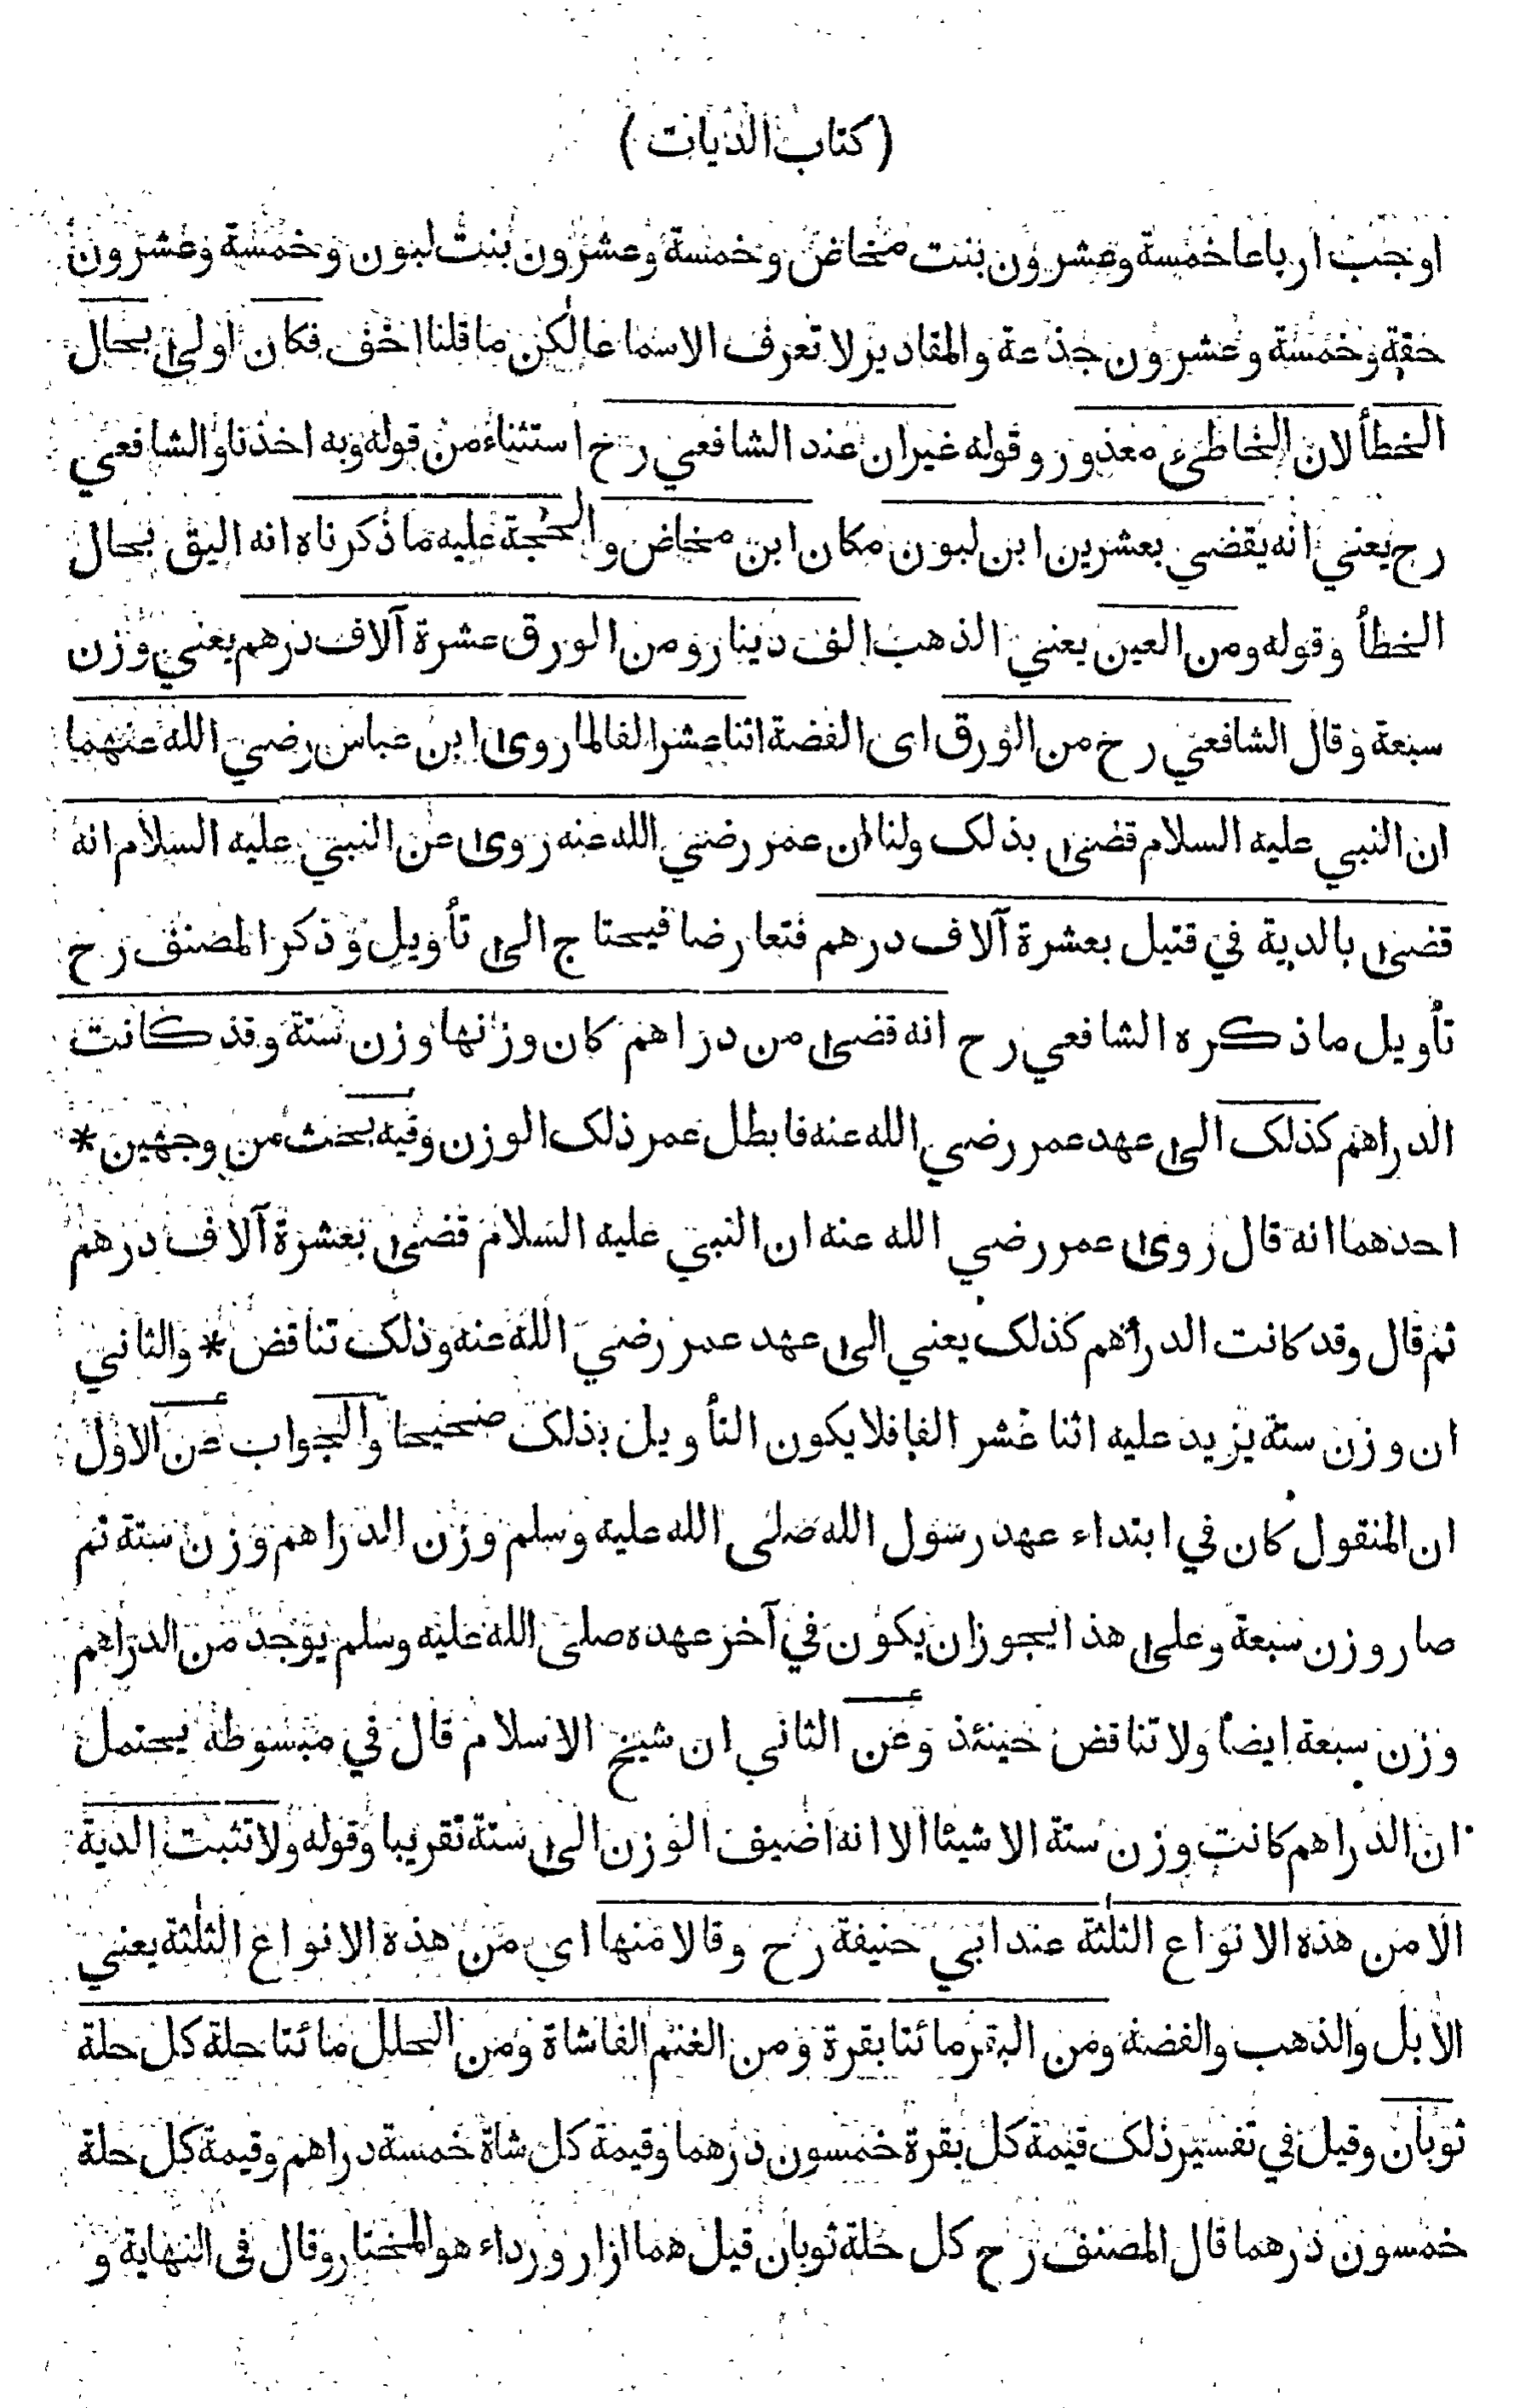 ( كتاب الديات )
اوجب ارباعا خمسة وعشرون بنت مخاض وخمسة وعشرون بنت لبون وخمسة وعشرون
حقة وخمسة وعشرون جذعة والمقادير لا تعرف الا سماعا لكن ما قلنا اخف فكان اولى بحال
الخطأ لان الخاطئ معذور وقوله غير ان عند الشافعي رح استثناء من قوله وبه اخذنا والشافعي
رح يعني انه يقضي بعشرين ابن لبون مكان ابن مخاض والحجة عليه ما ذكرناه انه اليق بحال
الخطأ وقوله ومن العين يعني الذهب الف دينار ومن الورق عشرة آلاف درهم يعني وزن
سبعة وقال الشافعي رح من الورق اى الفضة اثنا عشر الفا لما روى ابن عباس رضي الله عنهما
ان النبي عليه السلام قضى بذلك ولنا ان عمر رضي الله عنه روى عن النبي عليه السلام انه
قضى بالدية في قتيل بعشرة آلاف درهم فتعارضا فيحتاج الى تأويل وذكر المصنف رح
تأويل ما ذكره الشافعي رح انه قضى من دراهم كان وزنها وزن ستة وقد كانت
الدراهم كذلك الى عهد عمر رضي الله عنه فابطل عمر ذلك الوزن وفيه بحث من وجهين *
احدهما انه قال روى عمر رضي الله عنه ان النبي عليه السلام قضى بعشرة آلاف درهم
ثم قال وقد كانت الدراهم كذلك يعني الى عهد عمر رضي الله عنه وذلك تناقض * والثاني
ان وزن ستة يزيد عليه اثنا عشر الفا فلا يكون التأويل بذلك صحيحا والجواب عن الاول
ان المنقول كان في ابتداء عهد رسول الله صلى الله عليه وسلم وزن الدراهم وزن ستة ثم
صار وزن سبعة وعلى هذا يجوز ان يكون في آخر عهده صلى الله عليه وسلم يوجد من الدراهم
وزن سبعة ايضا ولا تناقض حينئذ وعن الثاني ان شيخ الاسلام قال في مبسوطه يحتمل
ان الدراهم كانت وزن ستة الا شيئا الا انه اضيف الوزن الى ستة تقريبا وقوله ولا تثبت الدية
الا من هذه الانواع الثلثة عند ابي حنيفة رح وقالا منها اي من هذه الانواع الثلثة يعني
الابل والذهب والفضة ومن البقر مائتا بقرة ومن الغنم الفا شاة ومن الحلل مائتا حلة كل حلة
ثوبان وقيل في تفسير ذلك قيمة كل بقرة خمسون درهما وقيمة كل شاة خمسة دراهم وقيمة كل حلة
خمسون درهما قال المصنف رح كل حلة ثوبان قيل هما ازار ورداء هو المختار وقال فى النهاية و